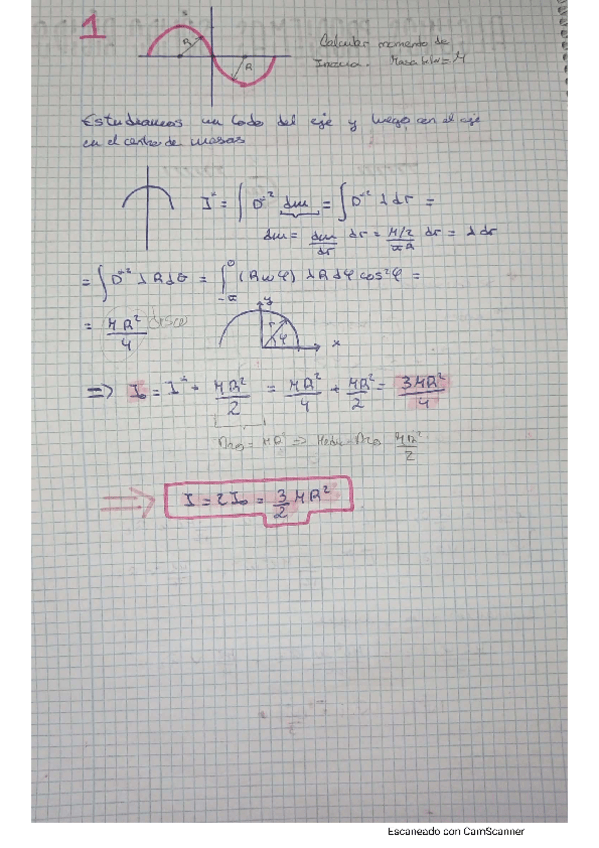 1
R
R
Calcular momento de
Inercia. Masa = M
Estudiamos un lado del eje y luego con el eje
en el centro de masas
I* = ∫ D*² dm = ∫ D*² λ dr =
dm = dm/dr dr = M/2 / πR dr = λ dr
= ∫ D*² λ R dθ = ∫ 0 -π (R cos φ) λ R dφ cos²φ =
y
r
φ
x
= MR²/4
=> I₀ = I* + MR²/2 = MR²/4 + MR²/2 = 3MR²/4
MR² => Medio MR²/2
I = 2I₀ = 3/2 MR²
Escaneado con CamScanner